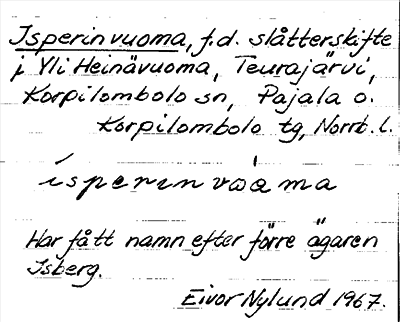 Isperinvuoma, f.d. slåtterskifte
i Yli Heinävuoma, Teurajärvi,
Korpilombolo sn, Pajala o.
Korpilombolo tg, Norrb. l.
isperinvɷama
Har fått namn efter förre ägaren
Isberg.
Eivor Nylund 1967.